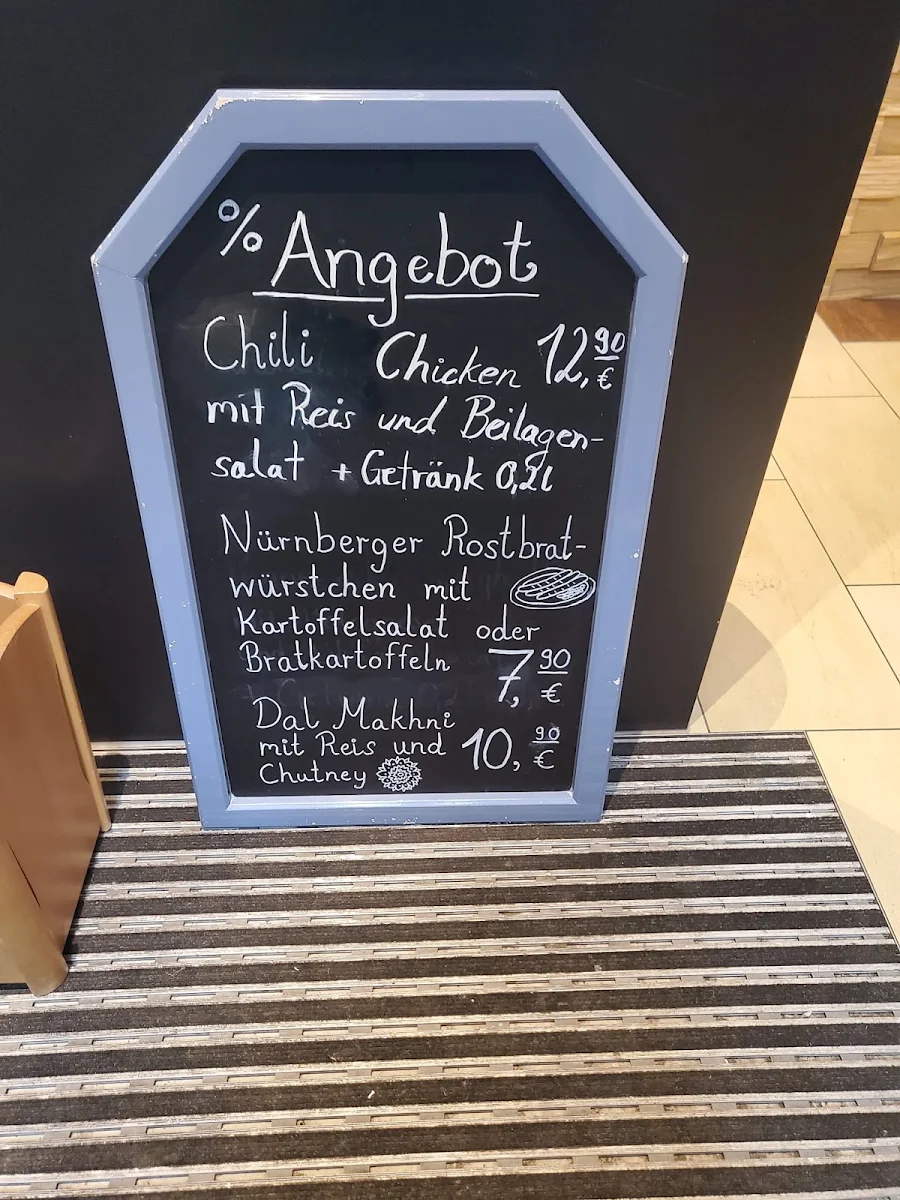 % Angebot
Chili Chicken 12,90 €
mit Reis und Beilagen-
salat + Getränk 0,2l
Nürnberger Rostbrat-
würstchen mit
Kartoffelsalat oder
Bratkartoffeln 7,90 €
Dal Makhni
mit Reis und 10,90 €
Chutney